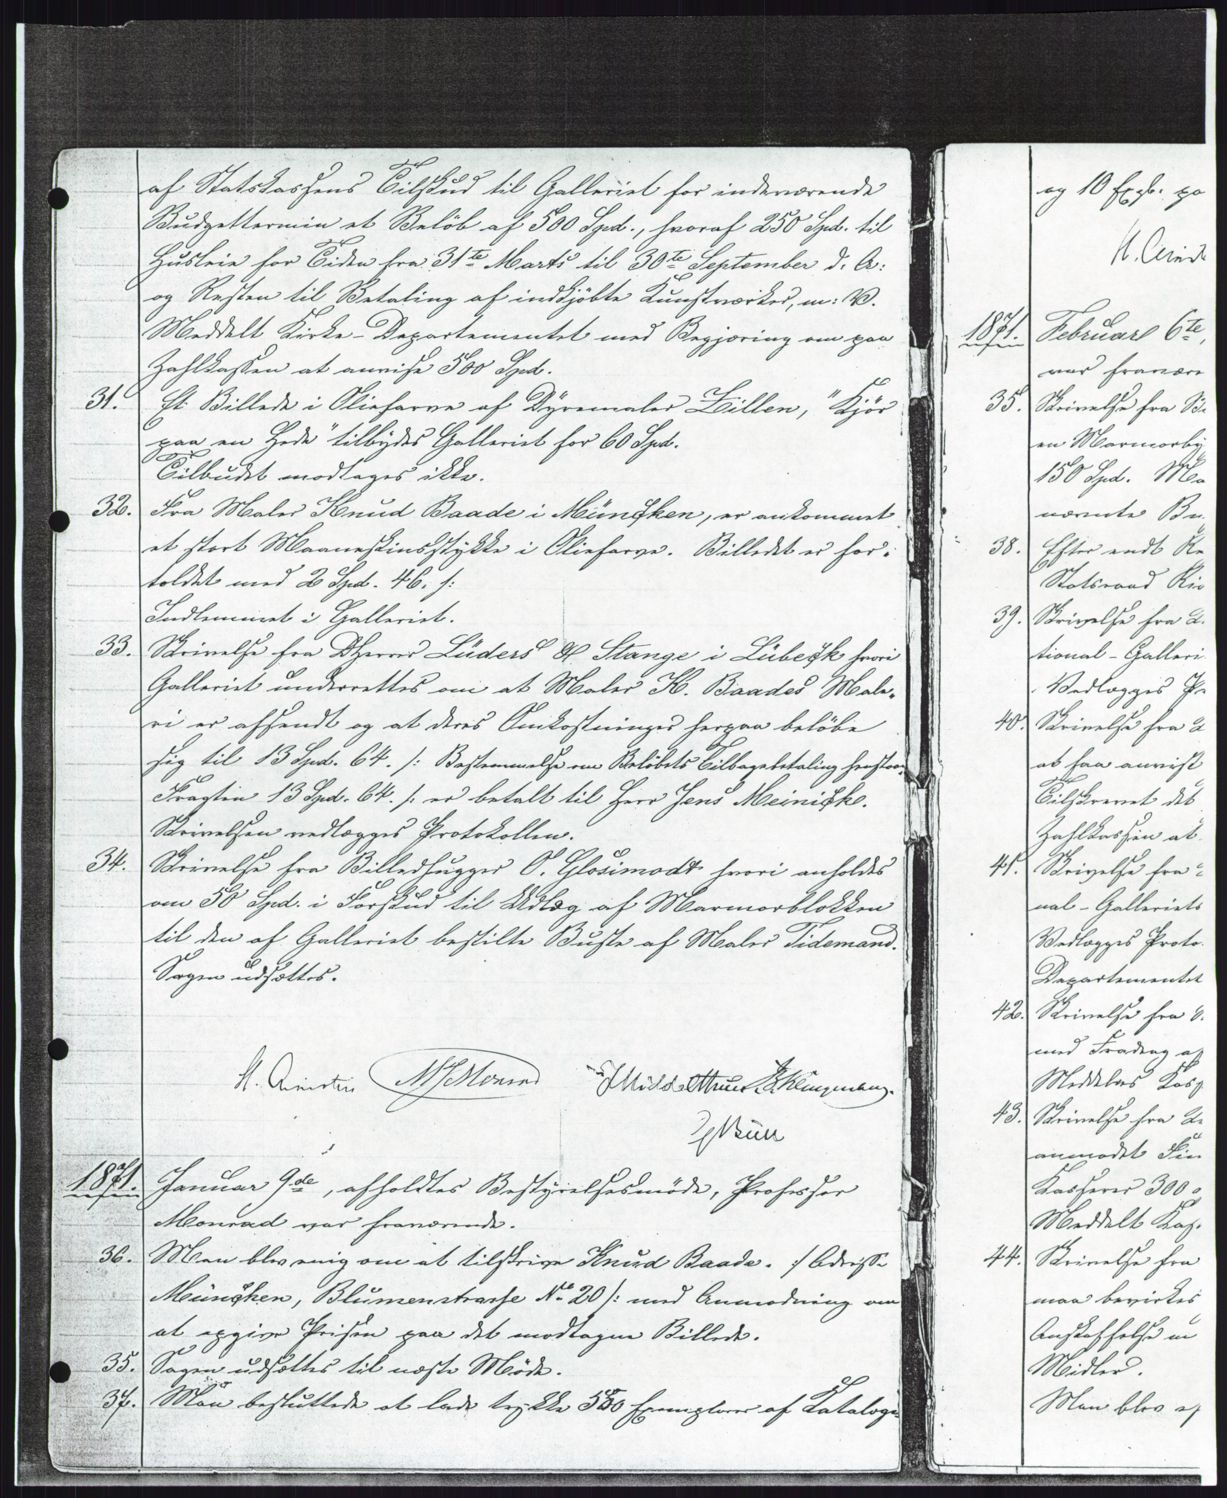 af Statskassens Tilskud til Galleriet for indeværende
Budgettermin et Beløb af 500 Spd., hvoraf 250 Spd. til
Husleie for Tiden fra 31te Marts til 30te September d. A:
og Resten til Betaling af indkjøbte Kunstværker, m: V.
Meddelt Kirke-Departementet med Begjæring om paa
Zahlkassen at anvise 500 Spd.
31. Et Billede i Oliefarve af Dyremaler Zillen, "Kjør
paa en Hede" tilbydes Galleriet for 60 Spd.
Tilbudet modtages ikke.
32. Fra Maler Knud Baade i München, er ankommet
et stort Maaneskinsstykke i Oliefarve. Billedet er for-
toldet med 2 Spd. 46. /:
Indlemmet i Galleriet.
33. Skrivelse fra DHerrer Lüders & Stange i Lübeck hvori
Galleriet underrettes om at Maler K. Baades Male-
ri er afsendt og at deres Omkostninger herpaa beløbe
sig til 13 Spd. 64. /: Bestemmelse om Beløbets Tilbagebetaling
Fragten 13 Spd. 64. /: er betalt til Herr Jens Meinicke.
Skrivelsen vedlægges Protokollen.
34. Skrivelse fra Billedhugger O. Glosimodt hvori anholdes
om 50 Spd. i Forskud til Udlæg af Marmorblokken
til den af Galleriet bestilte Buste af Maler Tidemand.
Sagen udsættes.
Middelthun
1871. Januar 9de, afholdtes Bestyrelsesmøde, Professor
Monrad var fraværende.
36. Man blev enig om at tilskrive Knud Baade. /: Adresse
München, Blumenstrasse No 20 /: med Anmodning om
at opgive Prisen paa det modtagne Billede.
35. Sagen udsættes til næste Møde.
37. Man besluttede at lade trykke 550 Exemplarer af
og 10 Expl. pa
1871. Februar 6te,
var fravære
35. Skrivelse fra
en Marmorby
150 Spd. Ma
nævnte Bu
38. Efter endt
Statsraad
39. Skrivelse fra
tional-Galleri
Vedlægges Pr
40. Skrivelse fra
at faa anvist
Tilskrevet det
Zahlkassen at
41. Skrivelse fra
nal-Galleriets
Vedlægges Proto
Departementet
42. Skrivelse fra
med Fradrag af
Meddeles
43. Skrivelse fra
anmodet
Kasserer 300
Meddelt
44. Skrivelse fra
maa bevirkes
Anskaffelse
Midler.
Man blev